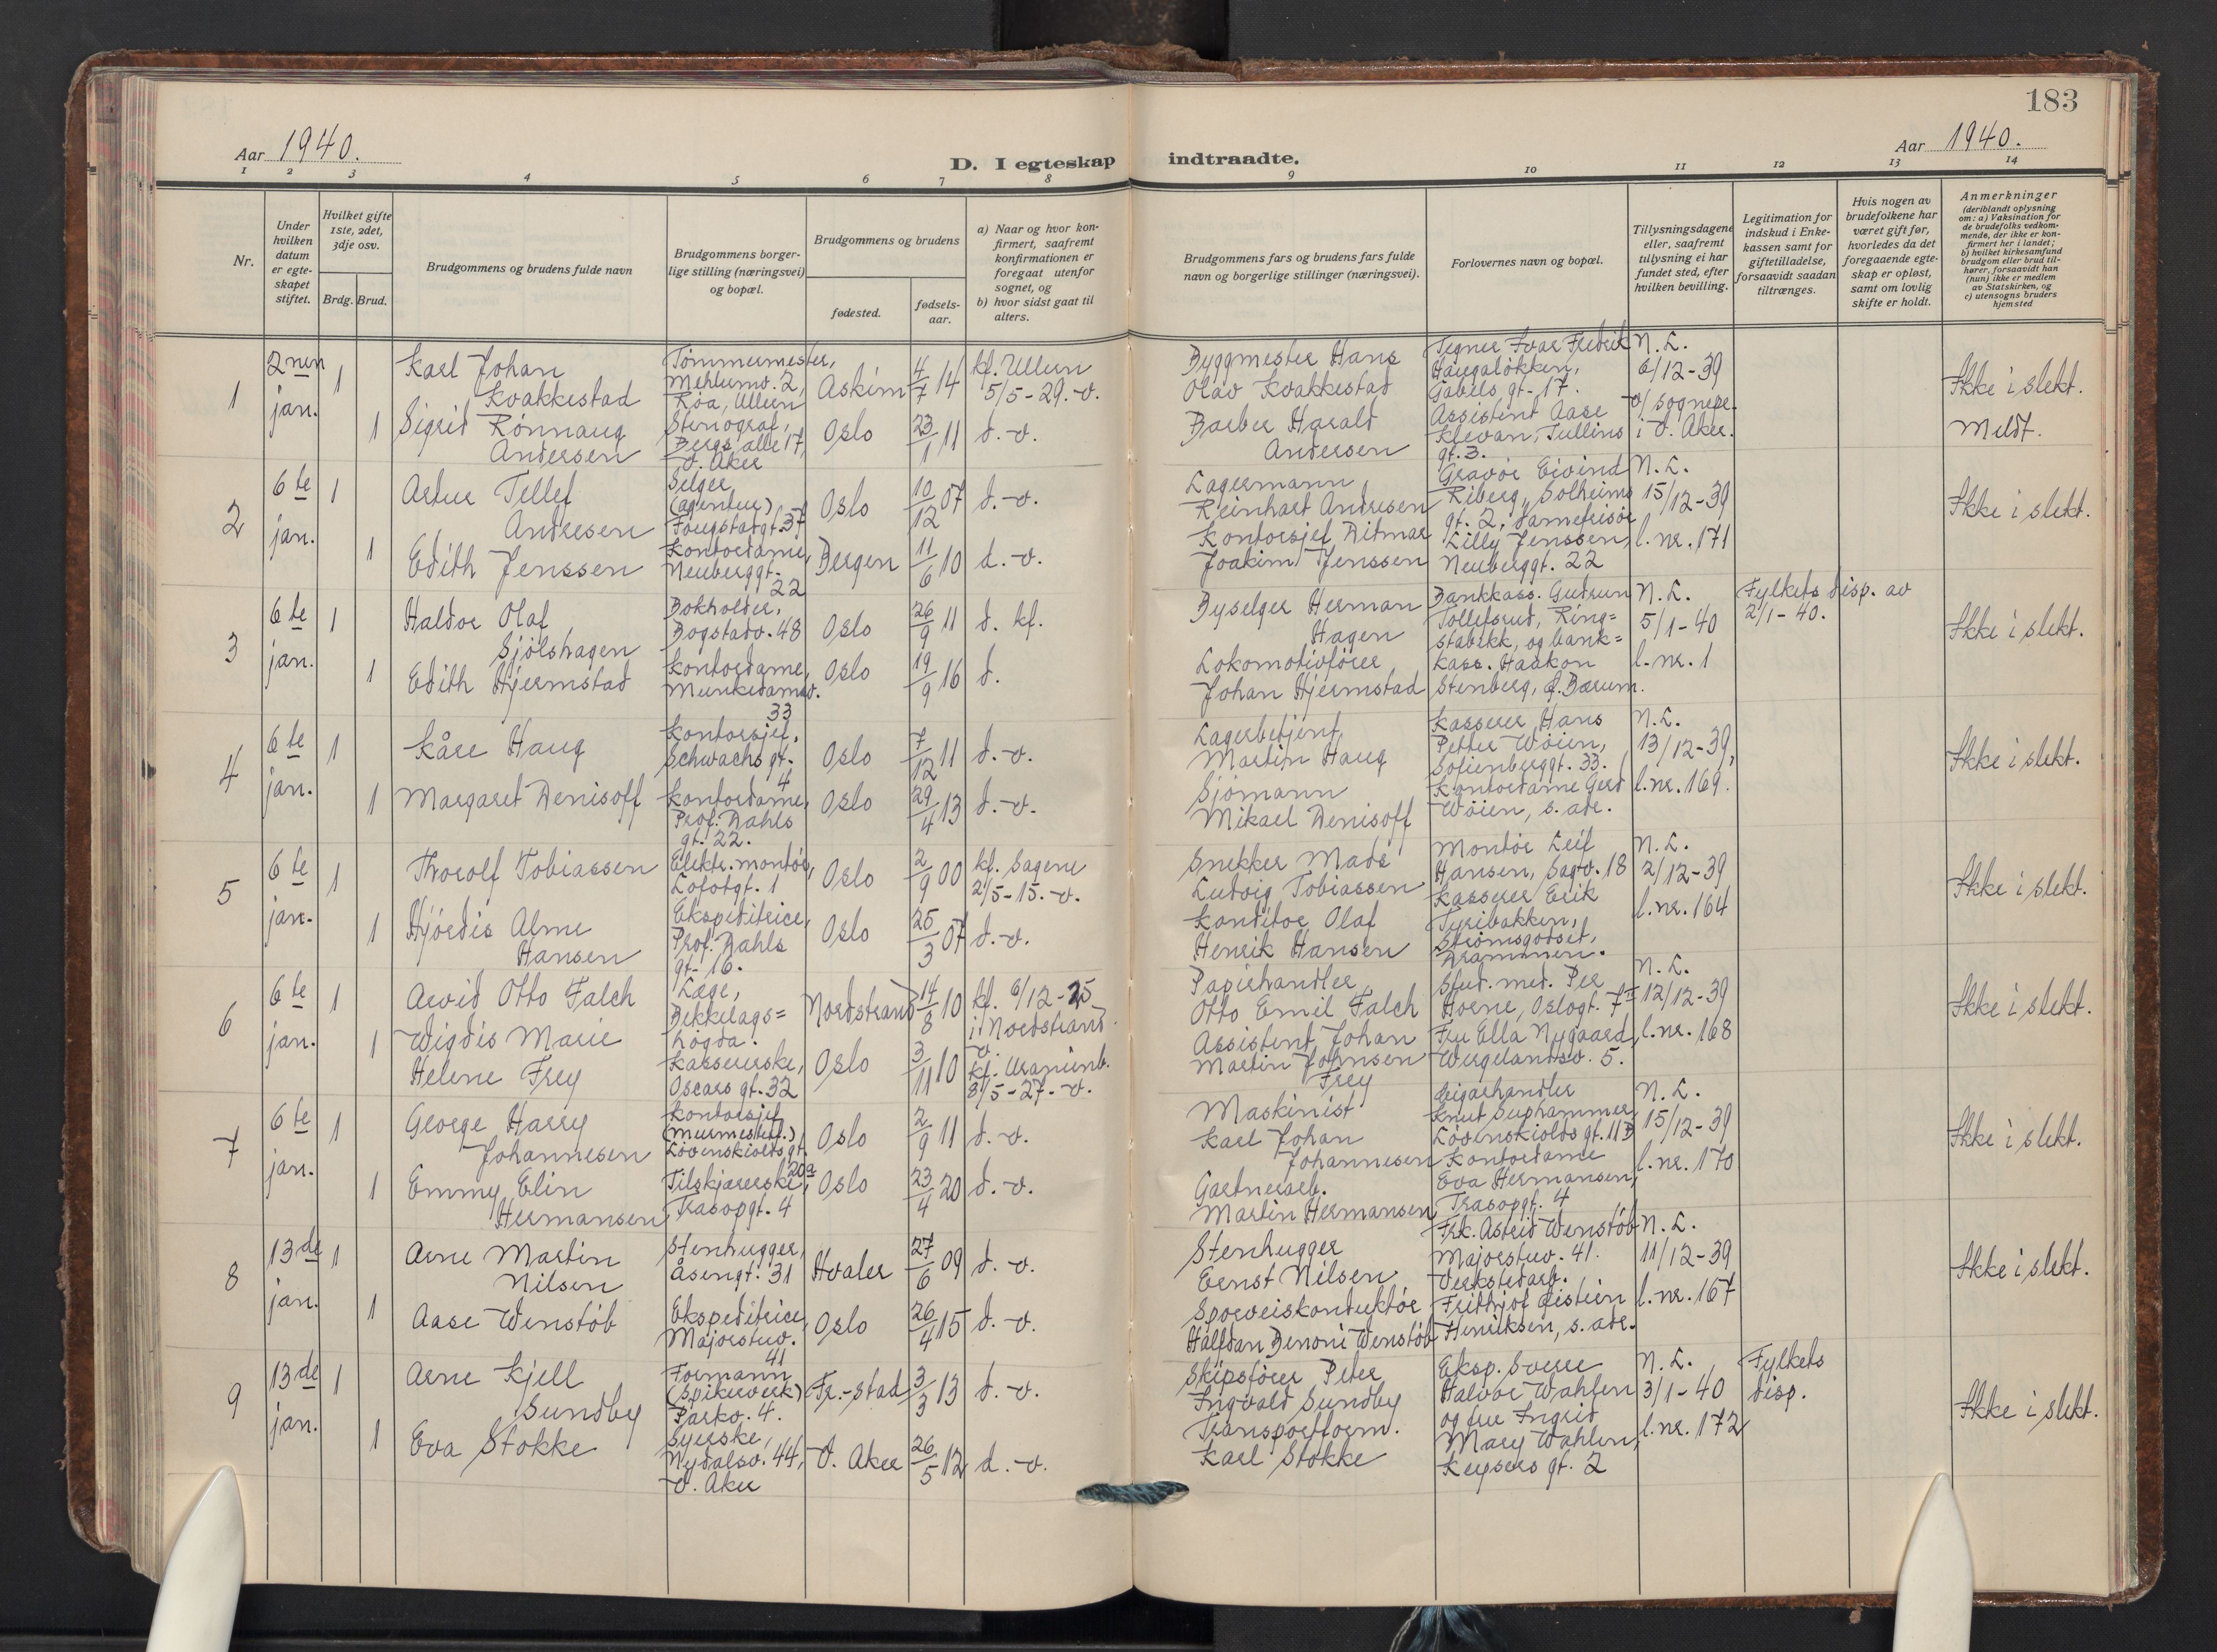 183
Aar 1940.
D. I egteskap indtraadte.
Aar 1940.
1 2 3 4 5 6 7 8 9 10 11 12 13 14
Nr.
Under hvilken datum er egteskapet stiftet.
Hvilket gifte 1ste, 2det, 3dje osv.
Brdg. Brud.
Brudgommens og brudens fulde navn
Brudgommens borgerlige stilling (næringsvei) og bopæl.
Brudgommens og brudens
fødested.
fødselsaar.
a) Naar og hvor konfirmert, saafremt konfirmationen er foregaat utenfor sognet, og
b) hvor sidst gaat til alters.
Brudgommens fars og brudens fars fulde navn og borgerlige stillinger (næringsvei).
Forlovernes navn og bopæl.
Tillysningsdagene eller, saafremt tillysning ei har fundet sted, efter hvilken bevilling.
Legitimation for indskud i Enkekassen samt for giftetilladelse, forsaavidt saadan tiltrænges.
Hvis nogen av brudefolkene har været gift før, hvorledes da det foregaaende egteskap er opløst, samt om lovlig skifte er holdt.
Anmerkninger
(deriblandt oplysning om: a) Vaksination for de brudefolks vedkommende, der ikke er konfirmert her i landet; b) hvilket kirkesamfund brudgom eller brud tilhører, forsaavidt han (hun) ikke er medlem av Statskirken, og c) utensogns bruders hjemsted
1
2nen jan.
1
Karl Johan
Kvakkestad
Tömmermester,
Mehlumv. 2,
Röa, Ullern
Askim
4/7 14
kf. Ullern
5/5-29. -v.
Byggmester Hans
Olav Kvakkestad
Tegner Ivar Fredrik
Haugalökken,
Gabels gt. 17.
N. L.
6/12-39
v/ sognepr.
i V. Aker.
Ikke i slekt.
1
Sigrid Rönnaug
Andersen
Stenograf,
Bergs allé 17,
V. Aker
Oslo
23/1 11
d. -v.
Barber Harald
Andersen
Assistent Aase
Klevan, Tullins
gt. 3.
Meldt.
2
6te jan.
1
Artur Tellef
Andresen
Selger
(agentur)
Fougstadgt. 37
Oslo
10/12 07
d. -v.
Lagermann
Reinhart Andresen
Gravör Eivind
Riberg, Solheims
gt. 2, damefrisör
N. L.
15/12-39
l. nr. 171
Ikke i slekt.
1
Edith Jenssen
Kontordame,
Neuberggt.
22
Bergen
11/6 10
d. -v.
Kontorsjef Ditmar
Joakim Jenssen
Lilly Jenssen,
Neuberggt. 22
3
6te jan.
1
Haldor Olaf
Sjölshagen
Bokholder,
Bogstadv. 48
Oslo
26/9 11
d. kf.
Byselger Herman
Hagen
Bankkass. Gudrun
Tollefsrud, Ring=
stabekk, og bank=
N. L.
5/1-40
l. nr. 1
Fylkets disp. av
2/1-40.
Ikke i slekt.
1
Edith Hjermstad
Kontordame,
Munkedamsv.
33
Oslo
19/9 16
d.
Lokomotivförer
Johan Hjermstad
kass. Haakon
Stenberg, Ö. Bærum.
4
6te jan.
1
Kåre Haug
Kontorsjef,
Schwachs gt.
4
Oslo
7/12 11
d. -v.
Lagerbetjent
Martin Haug
Kasserer Hans
Petter Wöien,
Sofienberggt. 33.
N. L.
13/12-39,
l. nr. 169.
Ikke i slekt.
1
Margaret Denisoff
Kontordame,
Prof. Dahls
gt. 22.
Oslo
29/4 13
d. -v.
Sjömann
Mikael Denisoff
Kontordame Gerd
Wöien, s. adr.
5
6te jan.
1
Thorolf Tobiassen
Elektr. montör,
Lofotgt. 1
Oslo
2/9 00
kf. Sagene
2/5-15. -v.
Snekker Mads
Ludvig Tobiassen
Montör Leif
Hansen, Sagv. 18
Kasserer Erik
N. L.
2/12-39
l. nr. 164
Ikke i slekt.
1
Hjördis Alme
Hansen
Ekspeditrice,
Prof. Dahls
gt. 16.
Oslo
25/3 07
d. -v.
Konditor Olaf
Henrik Hansen
Tyribakken,
Strömsgodset,
Drammen.
6
6te jan.
1
Arvid Otto Falch
Læge,
Bekkelags=
högda.
Nordstrand
14/8 10
kf. 6/12-25
i Nordstrand.
v.
Papirhandler
Otto Emil Falch
Stud. med. Per
Horne, Oslogt. 7 II
N. L.
12/12-39
l. nr. 168
Ikke i slekt.
1
Wigdis Marie
Helene Frey
Kassererske,
Oscars gt. 32
Oslo
3/11 10
kf. Uranienb.
8/5-27. -v.
Assistent Johan
Martin Johnsen
Frey
Fru Ella Nygaard,
Wergelandsv. 5.
7
6te jan.
1
George Harry
Johannesen
Kontorsjef
(murmesterf.)
Lövenskiolds gt.
20a
Oslo
2/9 11
d. -v.
Maskinist
Karl Johan
Johannesen
Sigarhandler
Knut Suphammer
Lövenskiolds gt. 11 B
N. L.
15/12-39
l. nr. 170
Ikke i slekt.
1
Emmy Elin
Hermansen
Tilskjærerske,
Trasopgt. 4
Oslo
23/4 20
d. -v.
Gartnerarb.
Martin Hermansen
Kontordame
Eva Hermansen,
Trasopgt. 4
8
13de jan.
1
Arne Martin
Nilsen
Stenhugger,
Åsengt. 31
Hvaler
27/6 09
d. -v.
Stenhugger
Ernst Nilsen
Frk. Astrid Wenstöb
Majorstuv. 41.
N. L.
11/12-39
l. nr. 167
Ikke i slekt.
1
Aase Wenstöb
Ekspeditrice,
Majorstuv.
41
Oslo
26/4 15
d. -v.
Sporveiskonduktör
Halfdan Benoni Wenstöb
Verkstedarb.
Frithjof Øistein
Henriksen, s. adr.
9
13de jan.
1
Arne Kjell
Sundby
Formann
(Spikerverk)
Parkv. 4.
Fr.-stad
3/3 13
d. -v.
Skipsförer Peter
Ingvald Sundby
Eksp. Sverre
Halvor Wahlen
og fru Ingrid
N. L.
3/1-40
l. nr. 172
Fylkets
disp.
Ikke i slekt.
1
Eva Stokke
Syerske,
Nydalsv. 44,
V. Aker
V. Aker
26/5 12
d. -v.
Transportform.
Karl Stokke
Mary Wahlen,
Keysers gt. 2